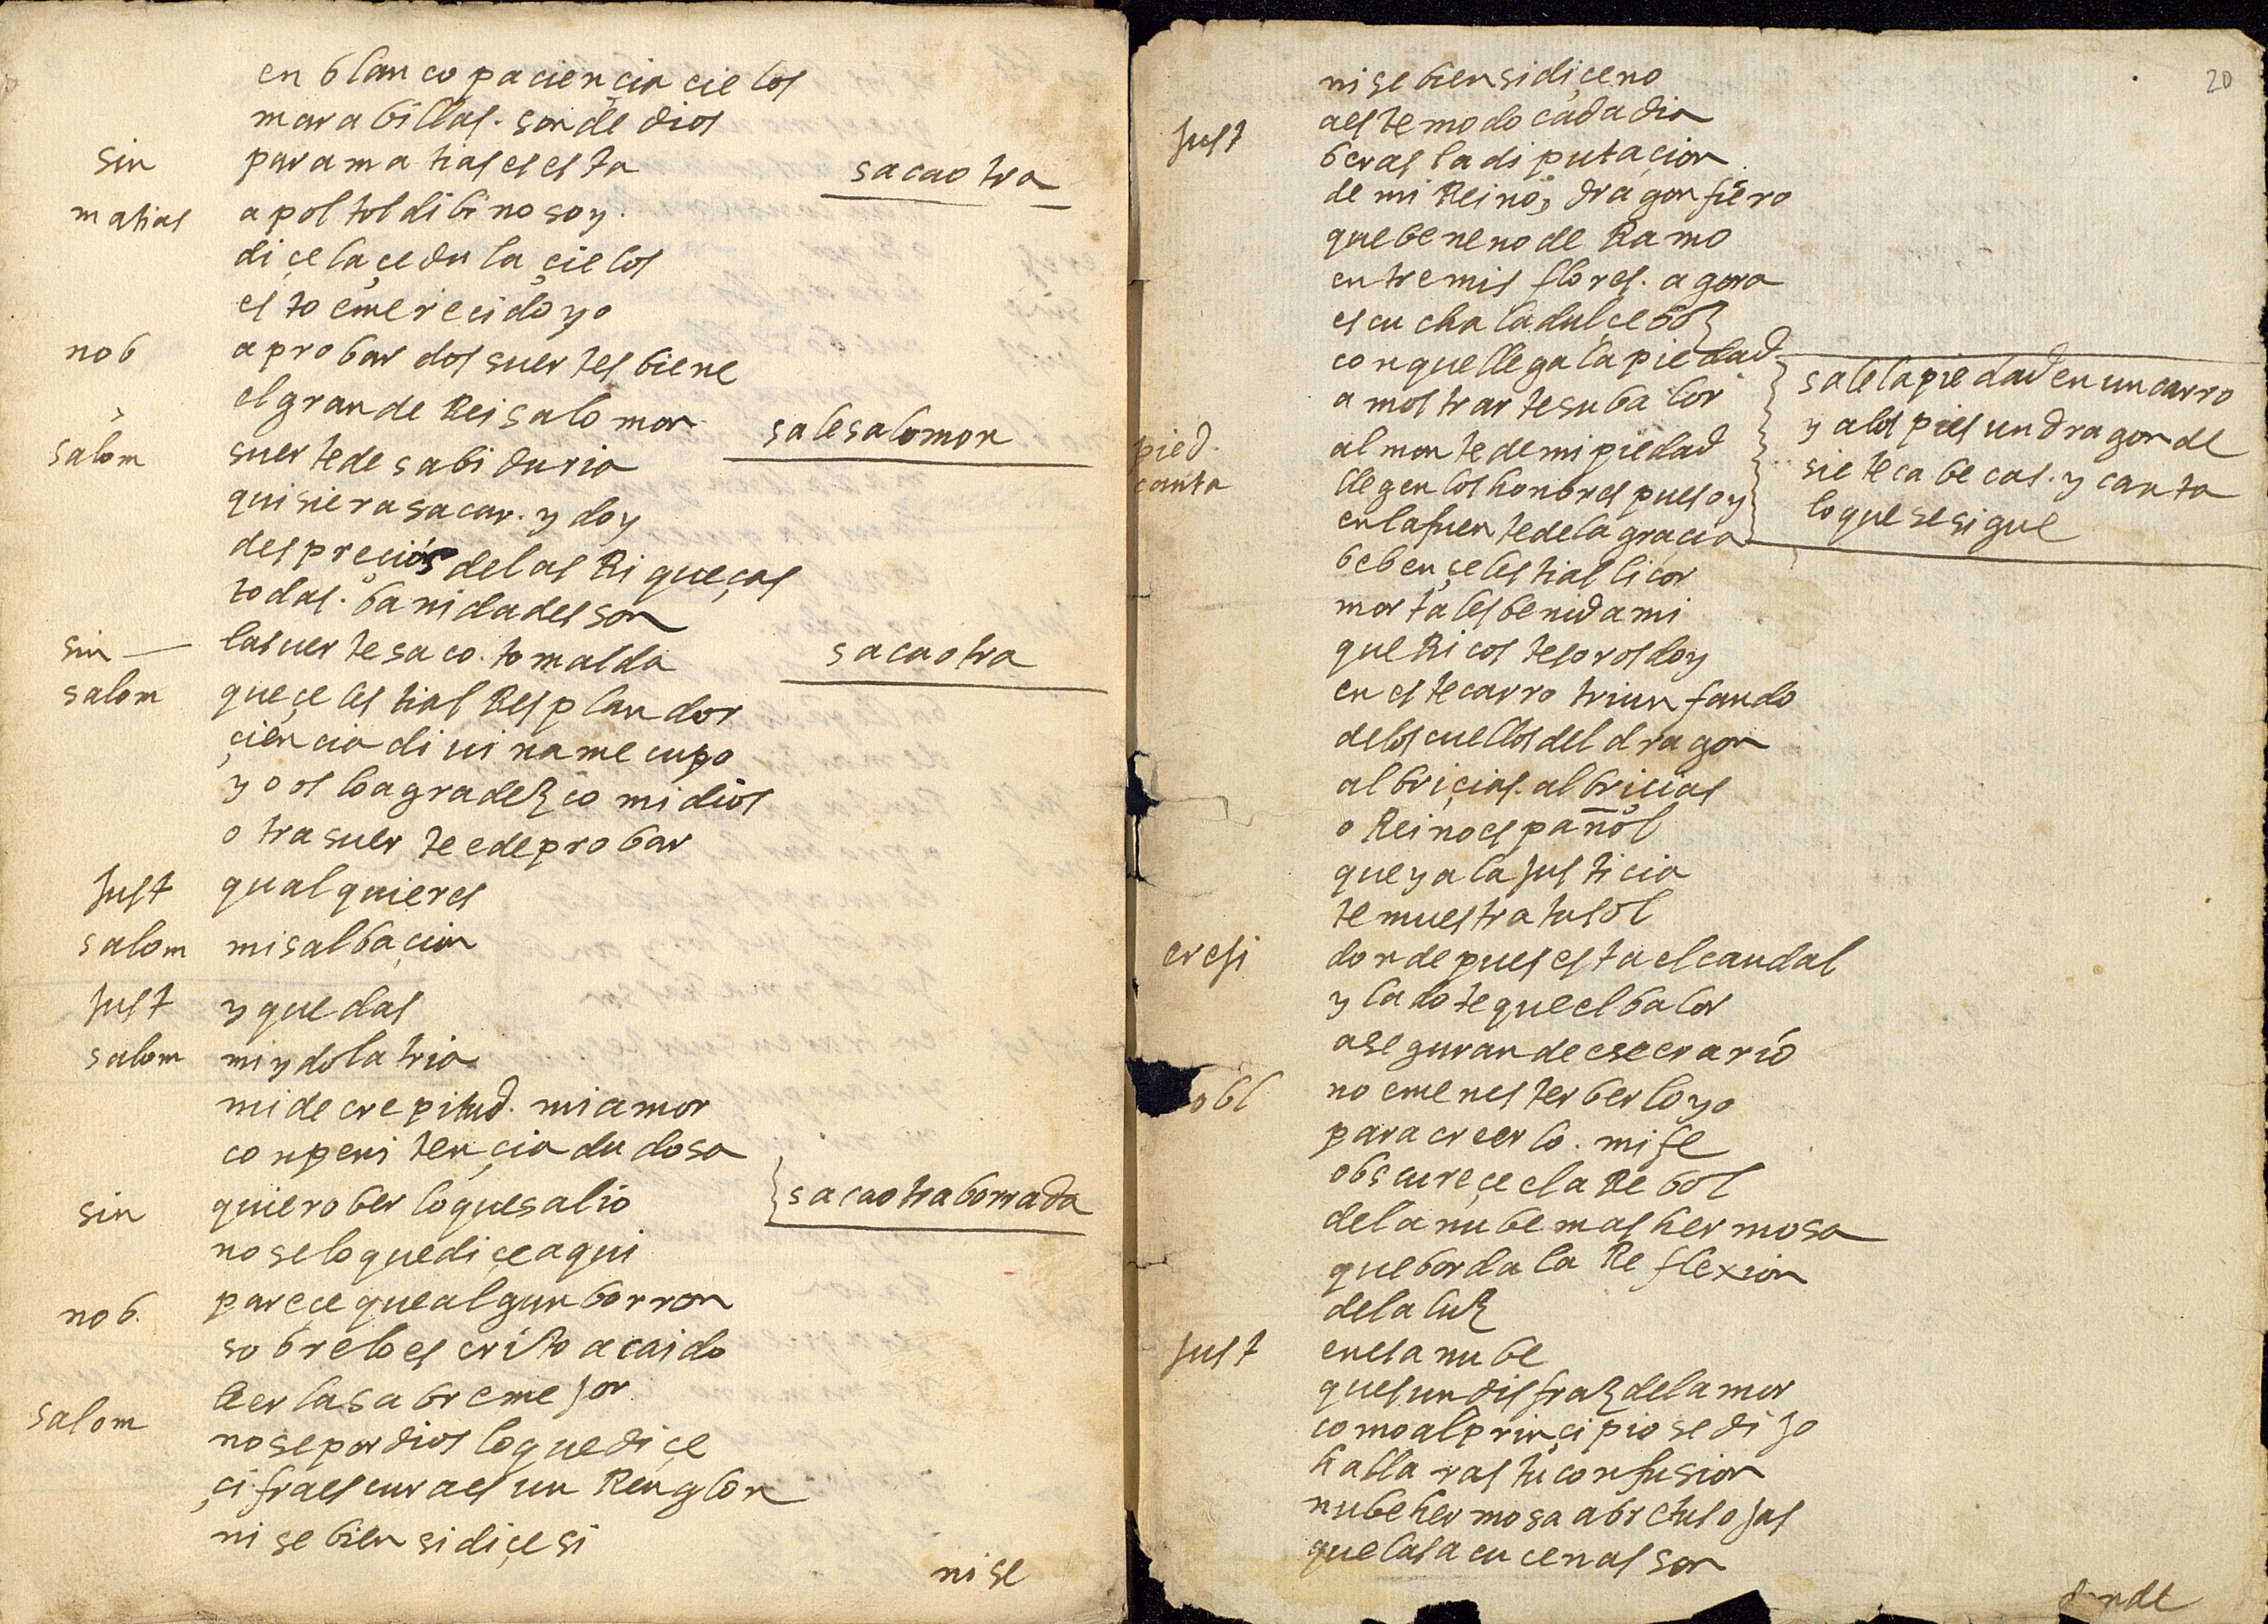 en blanco paciençia cielos
marabillas. son de dios
sin para matias es esta sacao tra
matias apostol dibino soy.
diçe la çedula çielos
esto e mereçido yo
nob a probar dos suertes biene
el grande Rei salomon sale salomon
salom suerte de sabiduria
quisiera sacar. y doy
despreçios de las Riqueças
todas. banidades son
sin la suerte saco. tomalda saca otra
salom que çelestial Resplandor
çiençia diuina me cupo
yo os lo agradezco mi dios
otra suerte e de probar
Just qual quieres
salom mi salbaçion
Just y que das
salom mi ydolatria
mi decrepitud. mi amor
con penitençia dudosa
sin quiero ber lo que salio saca otra borrada
no se lo que diçe aqui
nob. pareçe que algun borron
sobre lo escrito a caido
leer la sabre mejor
salom no se por dios lo que diçe
çifra escura es un Renglon
ni se bien si diçe si
ni se
20
ni se bien si diçe no
Just a este modo cada dia
beras la diputaçion
de mi Reino, dragon fiero
que beneno de Ramo
entre mis flores. agora
escucha la dulçe boz
con que llega la piedad
a mostrarte su balor
sale la piedad en un carro
y a los pies un dragon de
siete cabecas. y canta
lo que se sigue
pied. al monte de mi piedad
canta llegen los honbres pues oy
en la fuente de la graçia
beben çelestial licor
mortales benid a mi
que Ricos tesoros doy
en este carro triunfando
de los cuellos del dragon
albriçias. albriçias
o Reino español
que ya la Justicia
te muestra tu sol
eresi donde pues esta el caudal
y la dote que el balor
aseguran de ese erario
obl no e menester berlo yo
para creerlo. mi fe
obscureçe el aRebol
de la nube mas hermosa
que borda la Reflexion
de la luz
Just en esa nube
ques un disfraz del amor
como al prinçipio se dijo
hallaras tu confusion
nube hermosa abre tus ojas
que las acucenas son